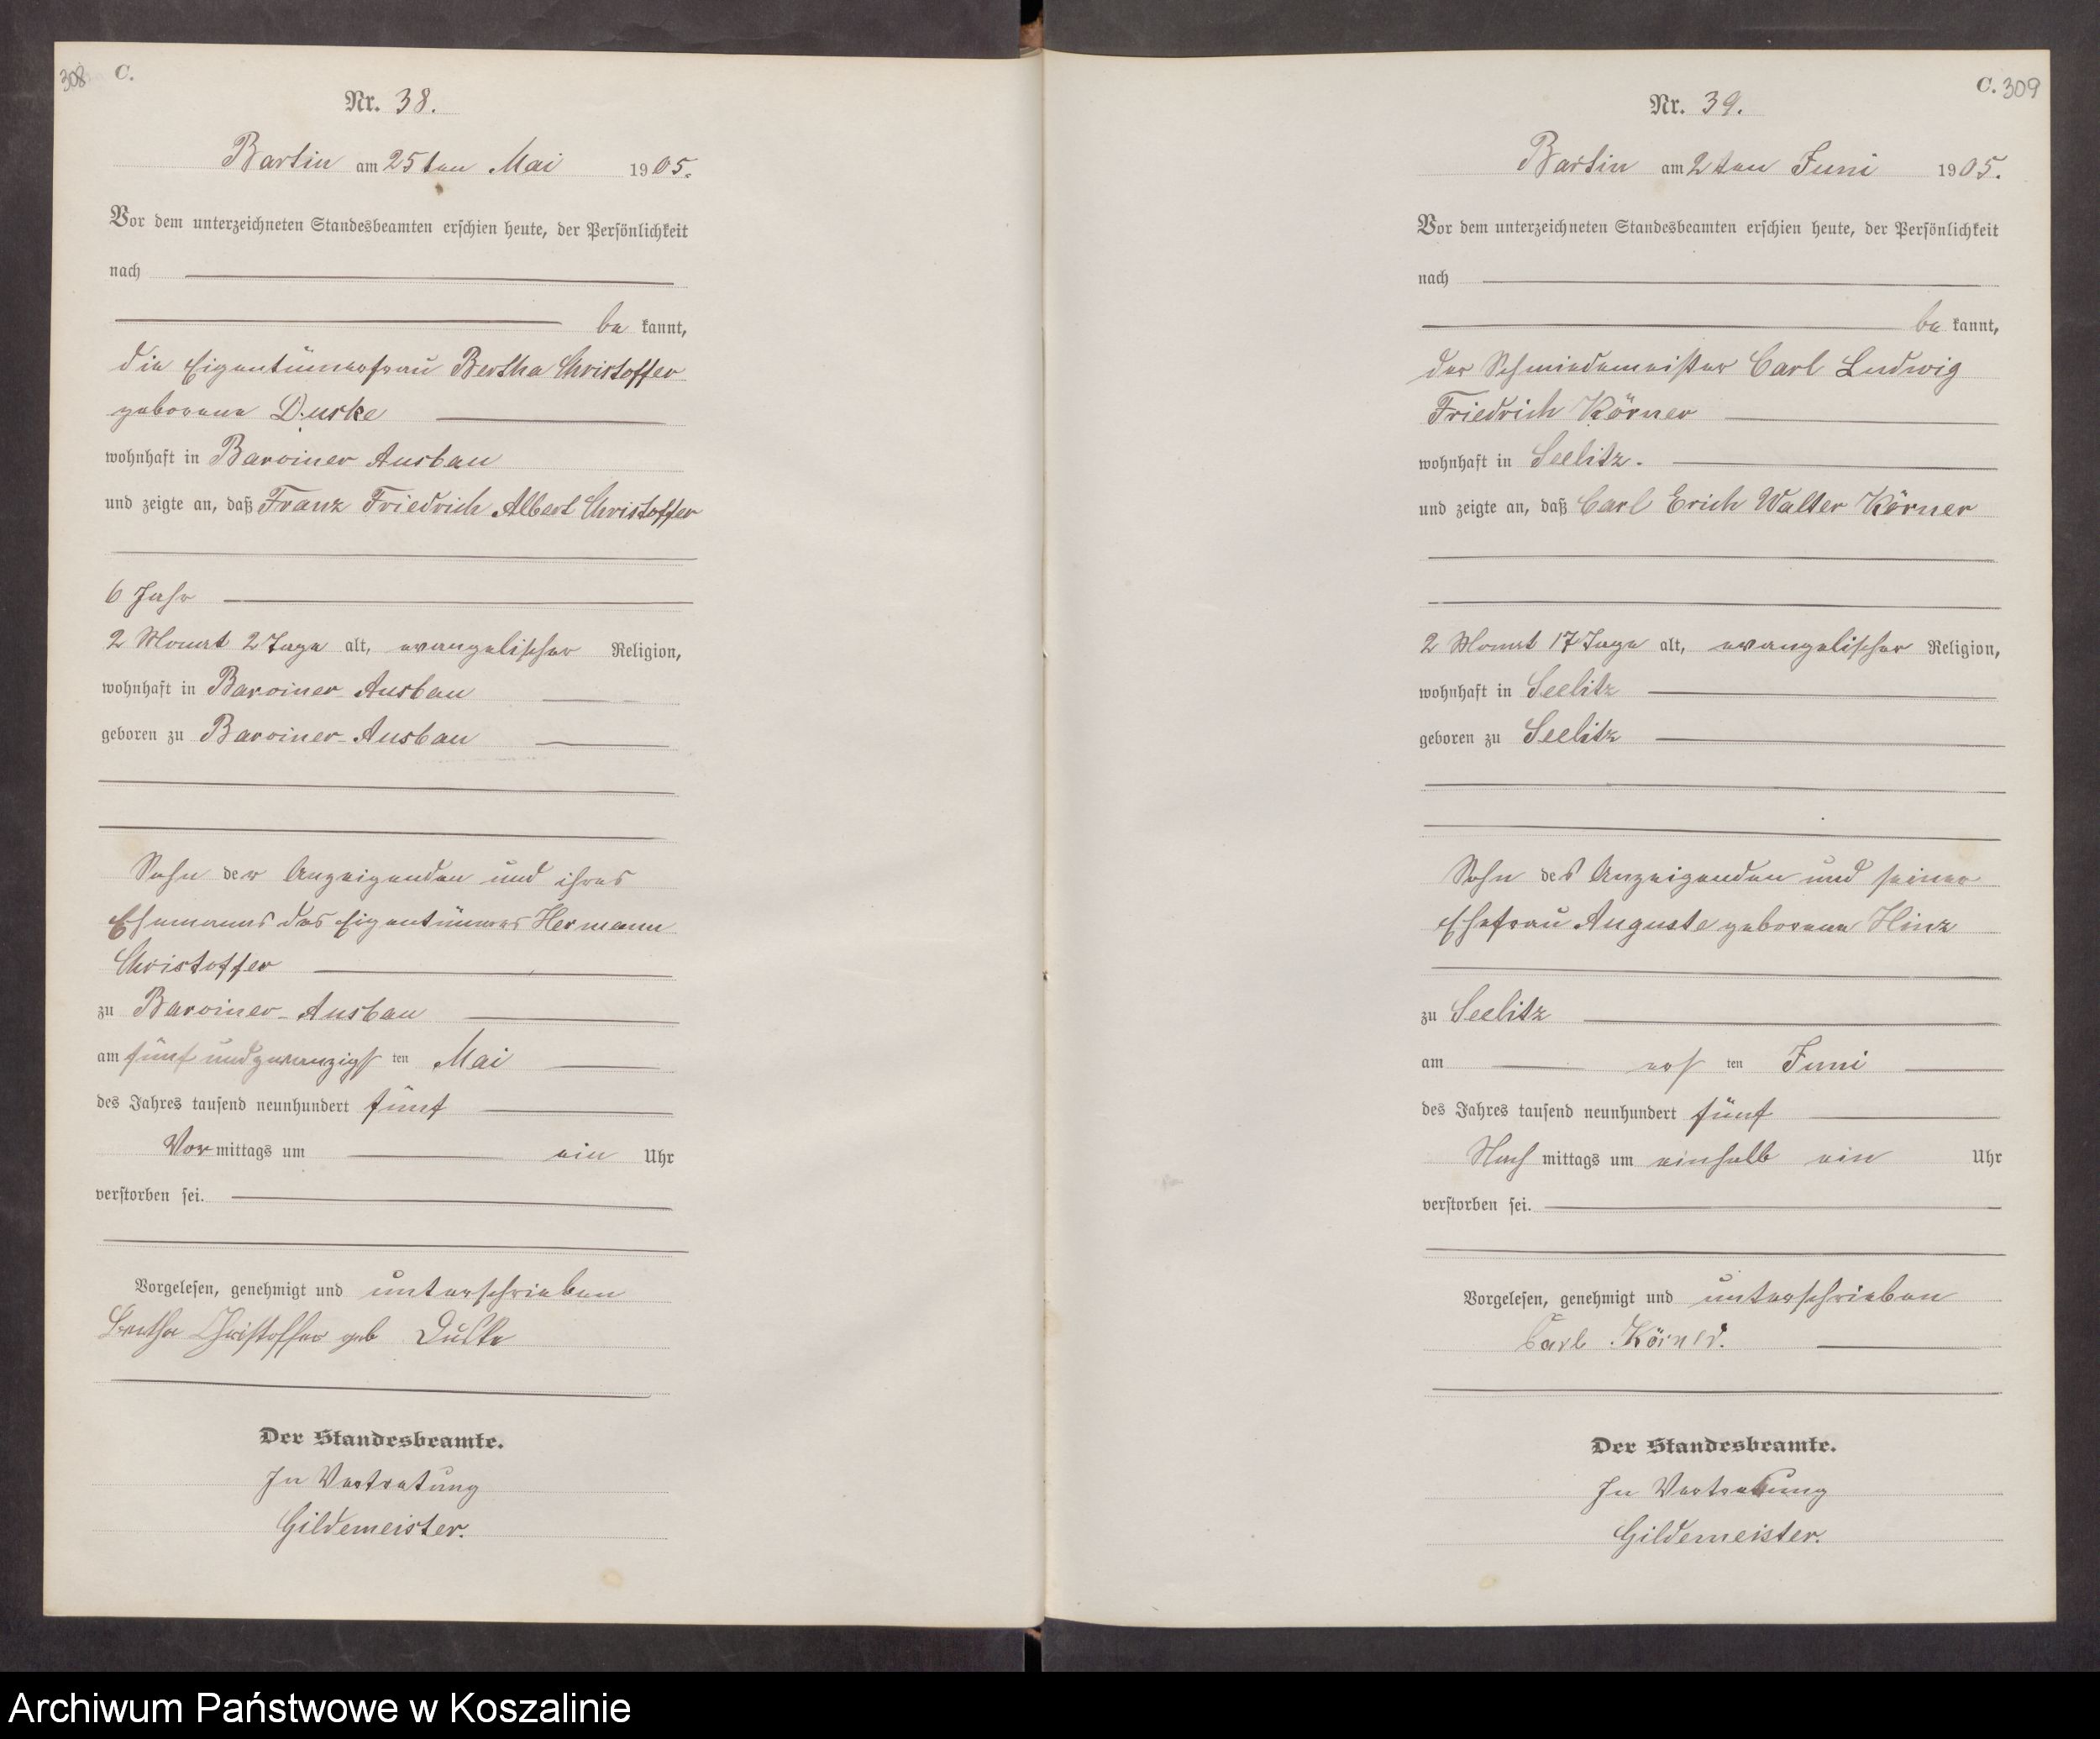 308 C.
Nr. 38.
Bartin am 25ten Mai 1905.
Vor dem unterzeichneten Standesbeamten erschien heute, der Persönlichkeit
nach
be kannt,
die Eigentümerfrau Bertha Christoffer
geborene Duske
wohnhaft in Barviner Ausbau
und zeigte an, daß Franz Friedrich Albert Christoffer
6 Jahr
2 Monat 2 Tage alt, evangelischer Religion,
wohnhaft in Barviner Ausbau
geboren zu Barviner-Ausbau
Sohn der Anzeigenden und ihres
Ehemanns des Eigentümers Hermann
Christoffer
zu Barviner-Ausbau
am fünf und zwanzigsten Mai
des Jahres tausend neunhundert fünf
Vormittags um ein Uhr
verstorben sei.
Vorgelesen, genehmigt und unterschrieben
Bertha Christoffer geb Duske
Der Standesbeamte.
In Vertretung
Gildemeister.
C. 309
Nr. 39.
Bartin am 2ten Juni 1905.
Vor dem unterzeichneten Standesbeamten erschien heute, der Persönlichkeit
nach
be kannt,
der Schmiedemeister Carl Ludwig
Friedrich Körner
wohnhaft in Seelitz.
und zeigte an, daß Carl Erich Walter Körner
2 Monat 17 Tage alt, evangelischer Religion,
wohnhaft in Seelitz
geboren zu Seelitz
Sohn des Anzeigenden und seiner
Ehefrau Auguste geborene Hinz
zu Seelitz
am ersten Juni
des Jahres tausend neunhundert fünf
Nachmittags um einhalb ein Uhr
verstorben sei.
Vorgelesen, genehmigt und unterschrieben
Carl Körner.
Der Standesbeamte.
In Vertretung
Gildemeister.
Archiwum Państwowe w Koszalinie